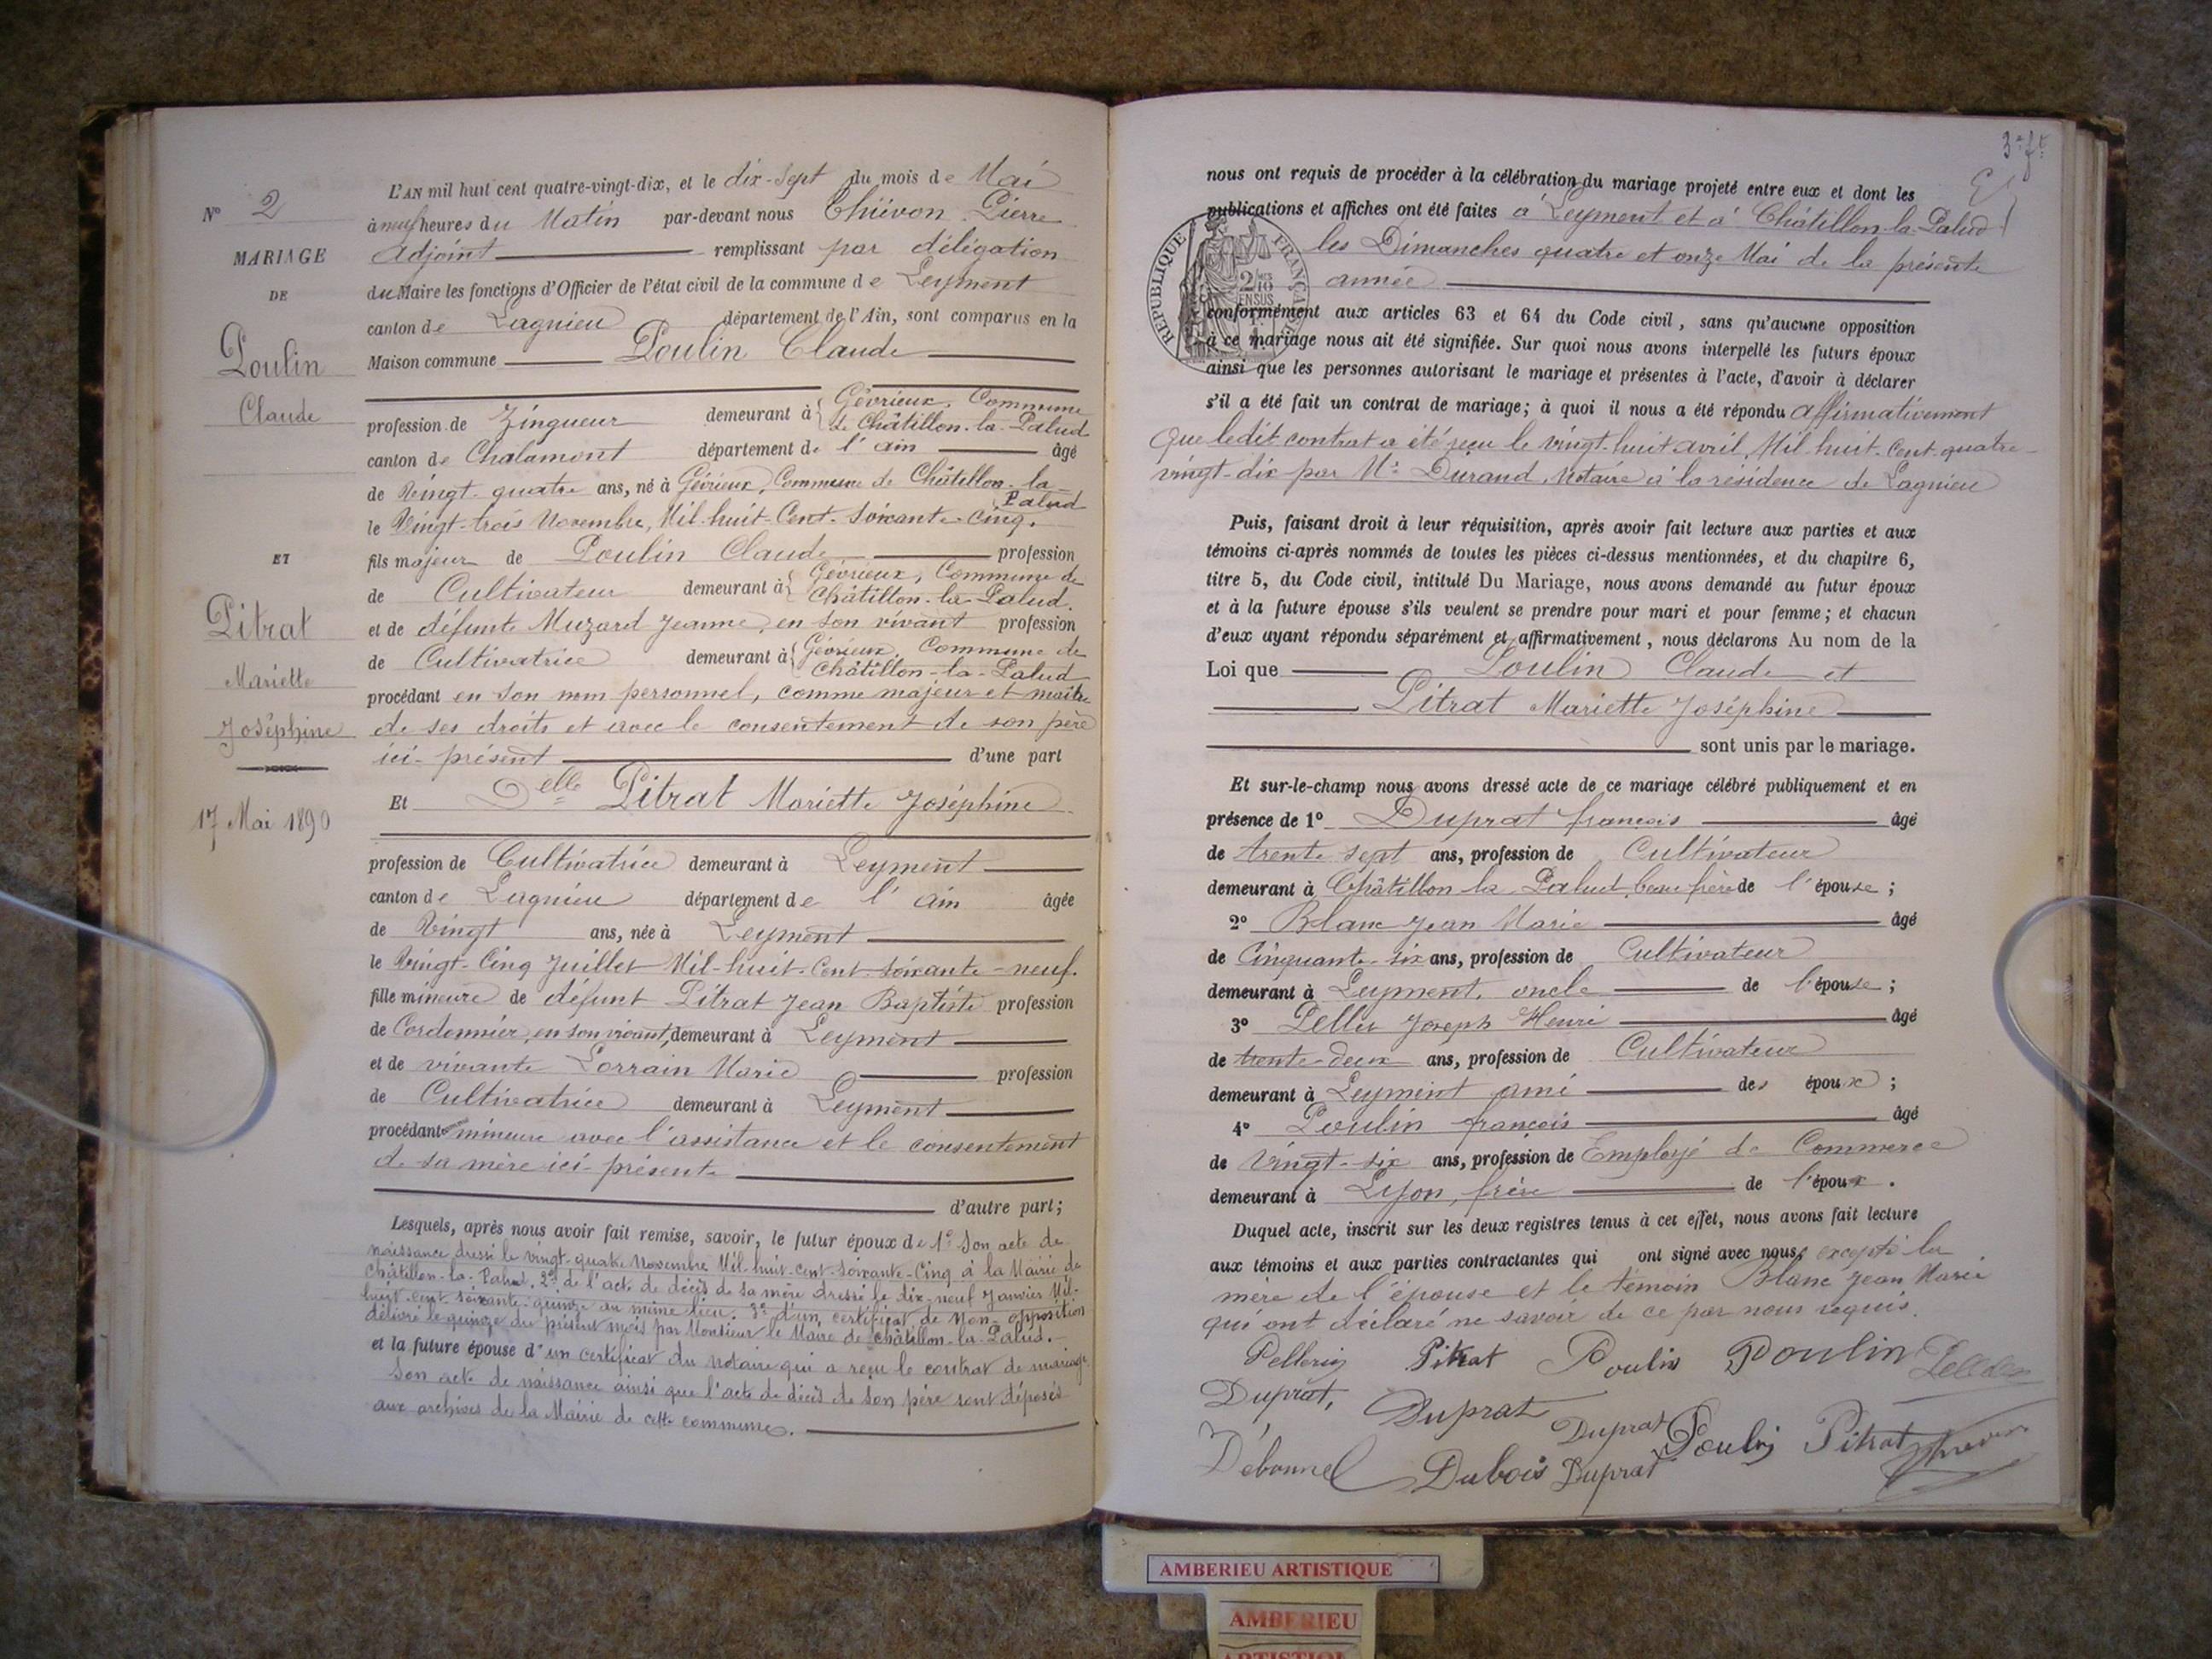 N° 2
MARIAGE
DE
Poulin
Claude
ET
Pitrat
Mariette
Joséphine
17 Mai 1890
L'AN mil huit cent quatre-vingt-dix, et le dix-sept du mois de Mai
à neuf heures du Matin par-devant nous Thiévon Pierre
adjoint remplissant par délégation
du Maire les fonctions d'Officier de l'état civil de la commune de Leyment
canton de Lagnieu département de l'Ain, sont comparus en la
Maison commune Poulin Claude
profession de Zingueur demeurant à Gévrieux, Commune
de Châtillon-la-Palud
canton de Chalamont département de l'ain âgé
de Vingt-quatre ans, né à Gévrieux, Commune de Châtillon-la-
Palud
le Vingt-trois Novembre, Mil-huit-Cent-Soixante-Cinq.
fils majeur de Poulin Claude profession
de Cultivateur demeurant à Gévrieux, Commune de
Châtillon-la-Palud.
et de défunte Muzard Jeanne, en son vivant profession
de Cultivatrice demeurant à Gévrieux, Commune de
Châtillon-la-Palud
procédant en son nom personnel, comme majeur et maître
de ses droits et avec le consentement de son père
ici-présent d'une part
Et Delle Pitrat Mariette Joséphine
profession de Cultivatrice demeurant à Leyment
canton de Lagnieu département de l'ain âgée
de Vingt ans, née à Leyment
le Vingt-Cinq Juillet Mil-huit-Cent-soixante-neuf.
fille mineure de défunt Pitrat Jean Baptiste profession
de Cordonnier, en son vivant, demeurant à Leyment
et de vivante Lorrain Marie profession
de Cultivatrice demeurant à Leyment
procédant mineure avec l'assistance et le consentement
de sa mère ici-présente
d'autre part;
Lesquels, après nous avoir fait remise, savoir, le futur époux de 1° Son acte de
naissance dressé le vingt-quatre Novembre Mil-huit-cent-soixante-Cinq à la Mairie de
Châtillon-la-Palud, 2° de l'acte de décès de sa mère dressé le dix-neuf Janvier Mil-
huit-cent-soixante-quinze au même lieu. 3° d'un certificat de Non-opposition
délivré le quinze du présent mois par Monsieur le Maire de Châtillon-la-Palud.
et la future épouse d'un certificat du notaire qui a reçu le contrat de mariage
Son acte de naissance ainsi que l'acte de décès de son père sont déposés
aux archives de la Mairie de cette commune.
3e ft
nous ont requis de procéder à la célébration du mariage projeté entre eux et dont les
publications et affiches ont été faites à Leyment et à Châtillon-la-Palud
les Dimanches quatre et onze Mai de la présente
année
RÉPUBLIQUE FRANÇAISE
2/10 EN SUS
conformément aux articles 63 et 64 du Code civil, sans qu'aucune opposition
à ce mariage nous ait été signifiée. Sur quoi nous avons interpellé les futurs époux
ainsi que les personnes autorisant le mariage et présentes à l'acte, d'avoir à déclarer
s'il a été fait un contrat de mariage; à quoi il nous a été répondu affirmativement
que ledit contrat a été reçu le vingt-huit avril, Mil-huit-Cent-quatre-
vingt-dix par Me Durand, Notaire à la résidence de Lagnieu
Puis, faisant droit à leur réquisition, après avoir fait lecture aux parties et aux
témoins ci-après nommés de toutes les pièces ci-dessus mentionnées, et du chapitre 6,
titre 5, du Code civil, intitulé Du Mariage, nous avons demandé au futur époux
et à la future épouse s'ils veulent se prendre pour mari et pour femme; et chacun
d'eux ayant répondu séparément et affirmativement, nous déclarons Au nom de la
Loi que Poulin Claude et
Pitrat Mariette Joséphine
sont unis par le mariage.
Et sur-le-champ nous avons dressé acte de ce mariage célébré publiquement et en
présence de 1° Duprat françois âgé
de trente sept ans, profession de Cultivateur
demeurant à Châtillon la Palud, beau frère de l'épouse;
2° Blanc Jean Marie âgé
de Cinquante-six ans, profession de Cultivateur
demeurant à Leyment, oncle de l'épouse;
3° Pellet Joseph Henri âgé
de trente-deux ans, profession de Cultivateur
demeurant à Leyment ami des époux;
4° Poulin françois âgé
de Vingt-six ans, profession de Employé de Commerce
demeurant à Lyon, frère de l'époux.
Duquel acte, inscrit sur les deux registres tenus à cet effet, nous avons fait lecture
aux témoins et aux parties contractantes qui ont signé avec nous, excepté la
mère de l'épouse et le témoin Blanc Jean Marie
qui ont déclaré ne savoir de ce par nous requis.
Pitrat Poulin Poulin
Duprat, Duprat Duprat Poulin Pitrat
Débonnel Dubois Duprat
AMBERIEU ARTISTIQUE
AMBERIEU
ARTISTIQUE